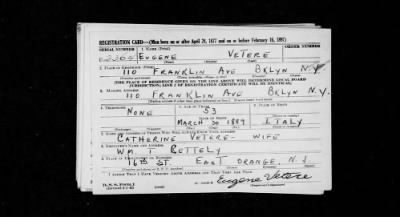 REGISTRATION CARD—(Men born on or after April 28, 1877 and on or before February 16, 1897)
SERIAL NUMBER 1. NAME (Print) ORDER NUMBER
EUGENE VETERE
2. PLACE OF RESIDENCE (Print)
110 FRANKLIN AVE BKLYN N.Y.
THE PLACE OF RESIDENCE GIVEN ON THE LINE ABOVE WILL DETERMINE LOCAL BOARD
JURISDICTION; LINE 2 OF REGISTRATION CERTIFICATE WILL BE IDENTICAL
3. MAILING ADDRESS
110 FRANKLIN AVE BKLYN N.Y.
4. TELEPHONE 5. AGE IN YEARS 6. PLACE OF BIRTH
NONE 53
DATE OF BIRTH
MARCH 30 1889 ITALY
7. NAME AND ADDRESS OF PERSON WHO WILL ALWAYS KNOW YOUR ADDRESS
CATHERINE VETERE- WIFE
8. EMPLOYER'S NAME AND ADDRESS
WM. T. BETTELY
16TH ST. EAST ORANGE, N.J.
I AFFIRM THAT I HAVE VERIFIED ABOVE ANSWERS AND THAT THEY ARE TRUE.
D.S.S. Form 1
Eugene Vetere